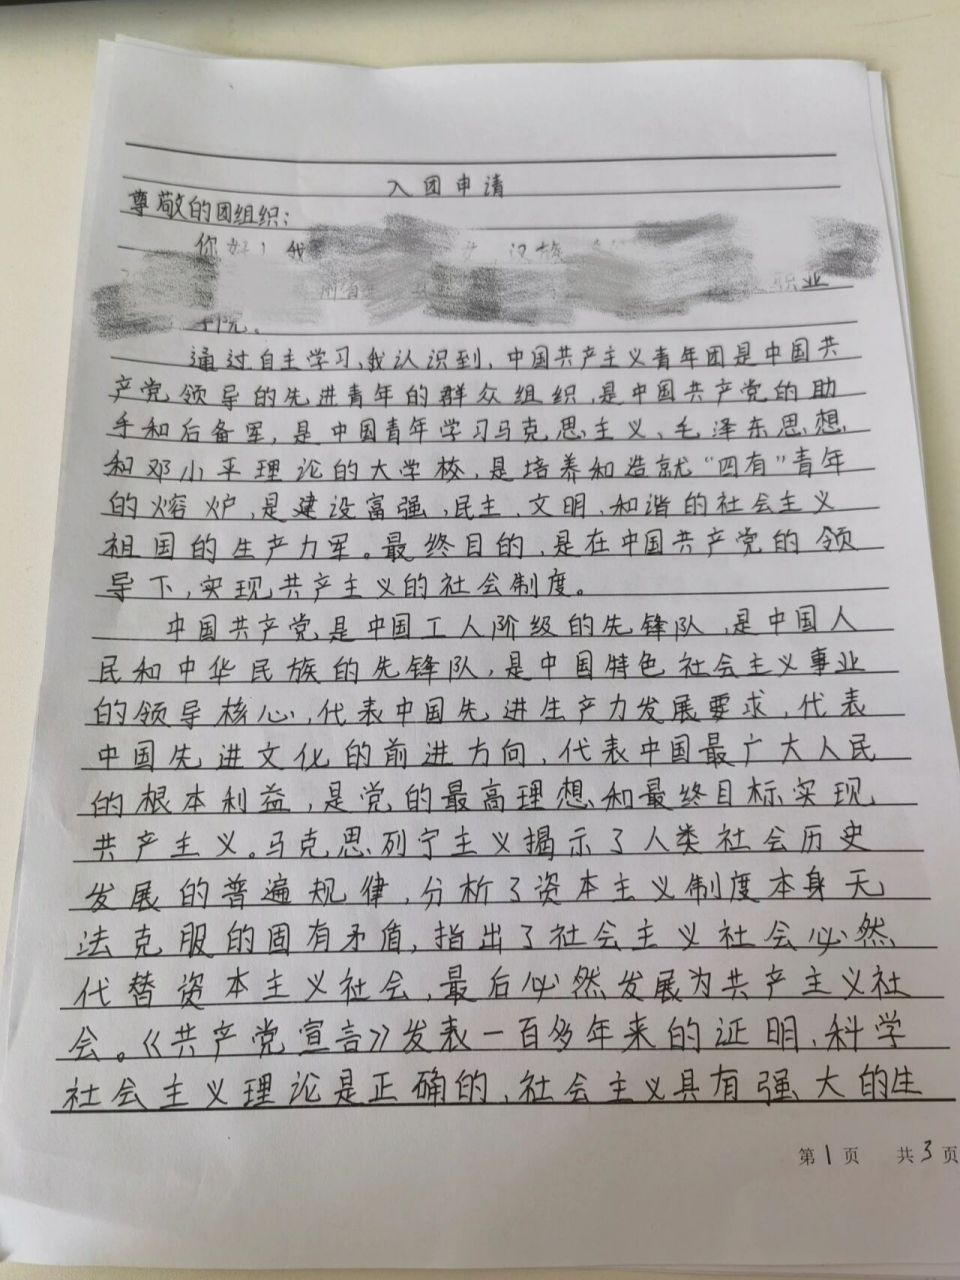 入团申请
尊敬的团组织：
你好！我 汉族
职业
通过自主学习，我认识到，中国共产主义青年团是中国共
产党领导的先进青年的群众组织，是中国共产党的助
手和后备军，是中国青年学习马克思主义、毛泽东思想
和邓小平理论的大学校，是培养和造就“四有”青年
的熔炉，是建设富强、民主、文明、和谐的社会主义
祖国的生产力军。最终目的，是在中国共产党的领
导下，实现共产主义的社会制度。
中国共产党是中国工人阶级的先锋队，是中国人
民和中华民族的先锋队，是中国特色社会主义事业
的领导核心，代表中国先进生产力发展要求，代表
中国先进文化的前进方向，代表中国最广大人民
的根本利益，是党的最高理想和最终目标实现
共产主义。马克思列宁主义揭示了人类社会历史
发展的普遍规律，分析了资本主义制度本身无
法克服的固有矛盾，指出了社会主义社会必然
代替资本主义社会，最后必然发展为共产主义社
会。《共产党宣言》发表一百多年来的证明，科学
社会主义理论是正确的，社会主义具有强大的生
第1页 共3页